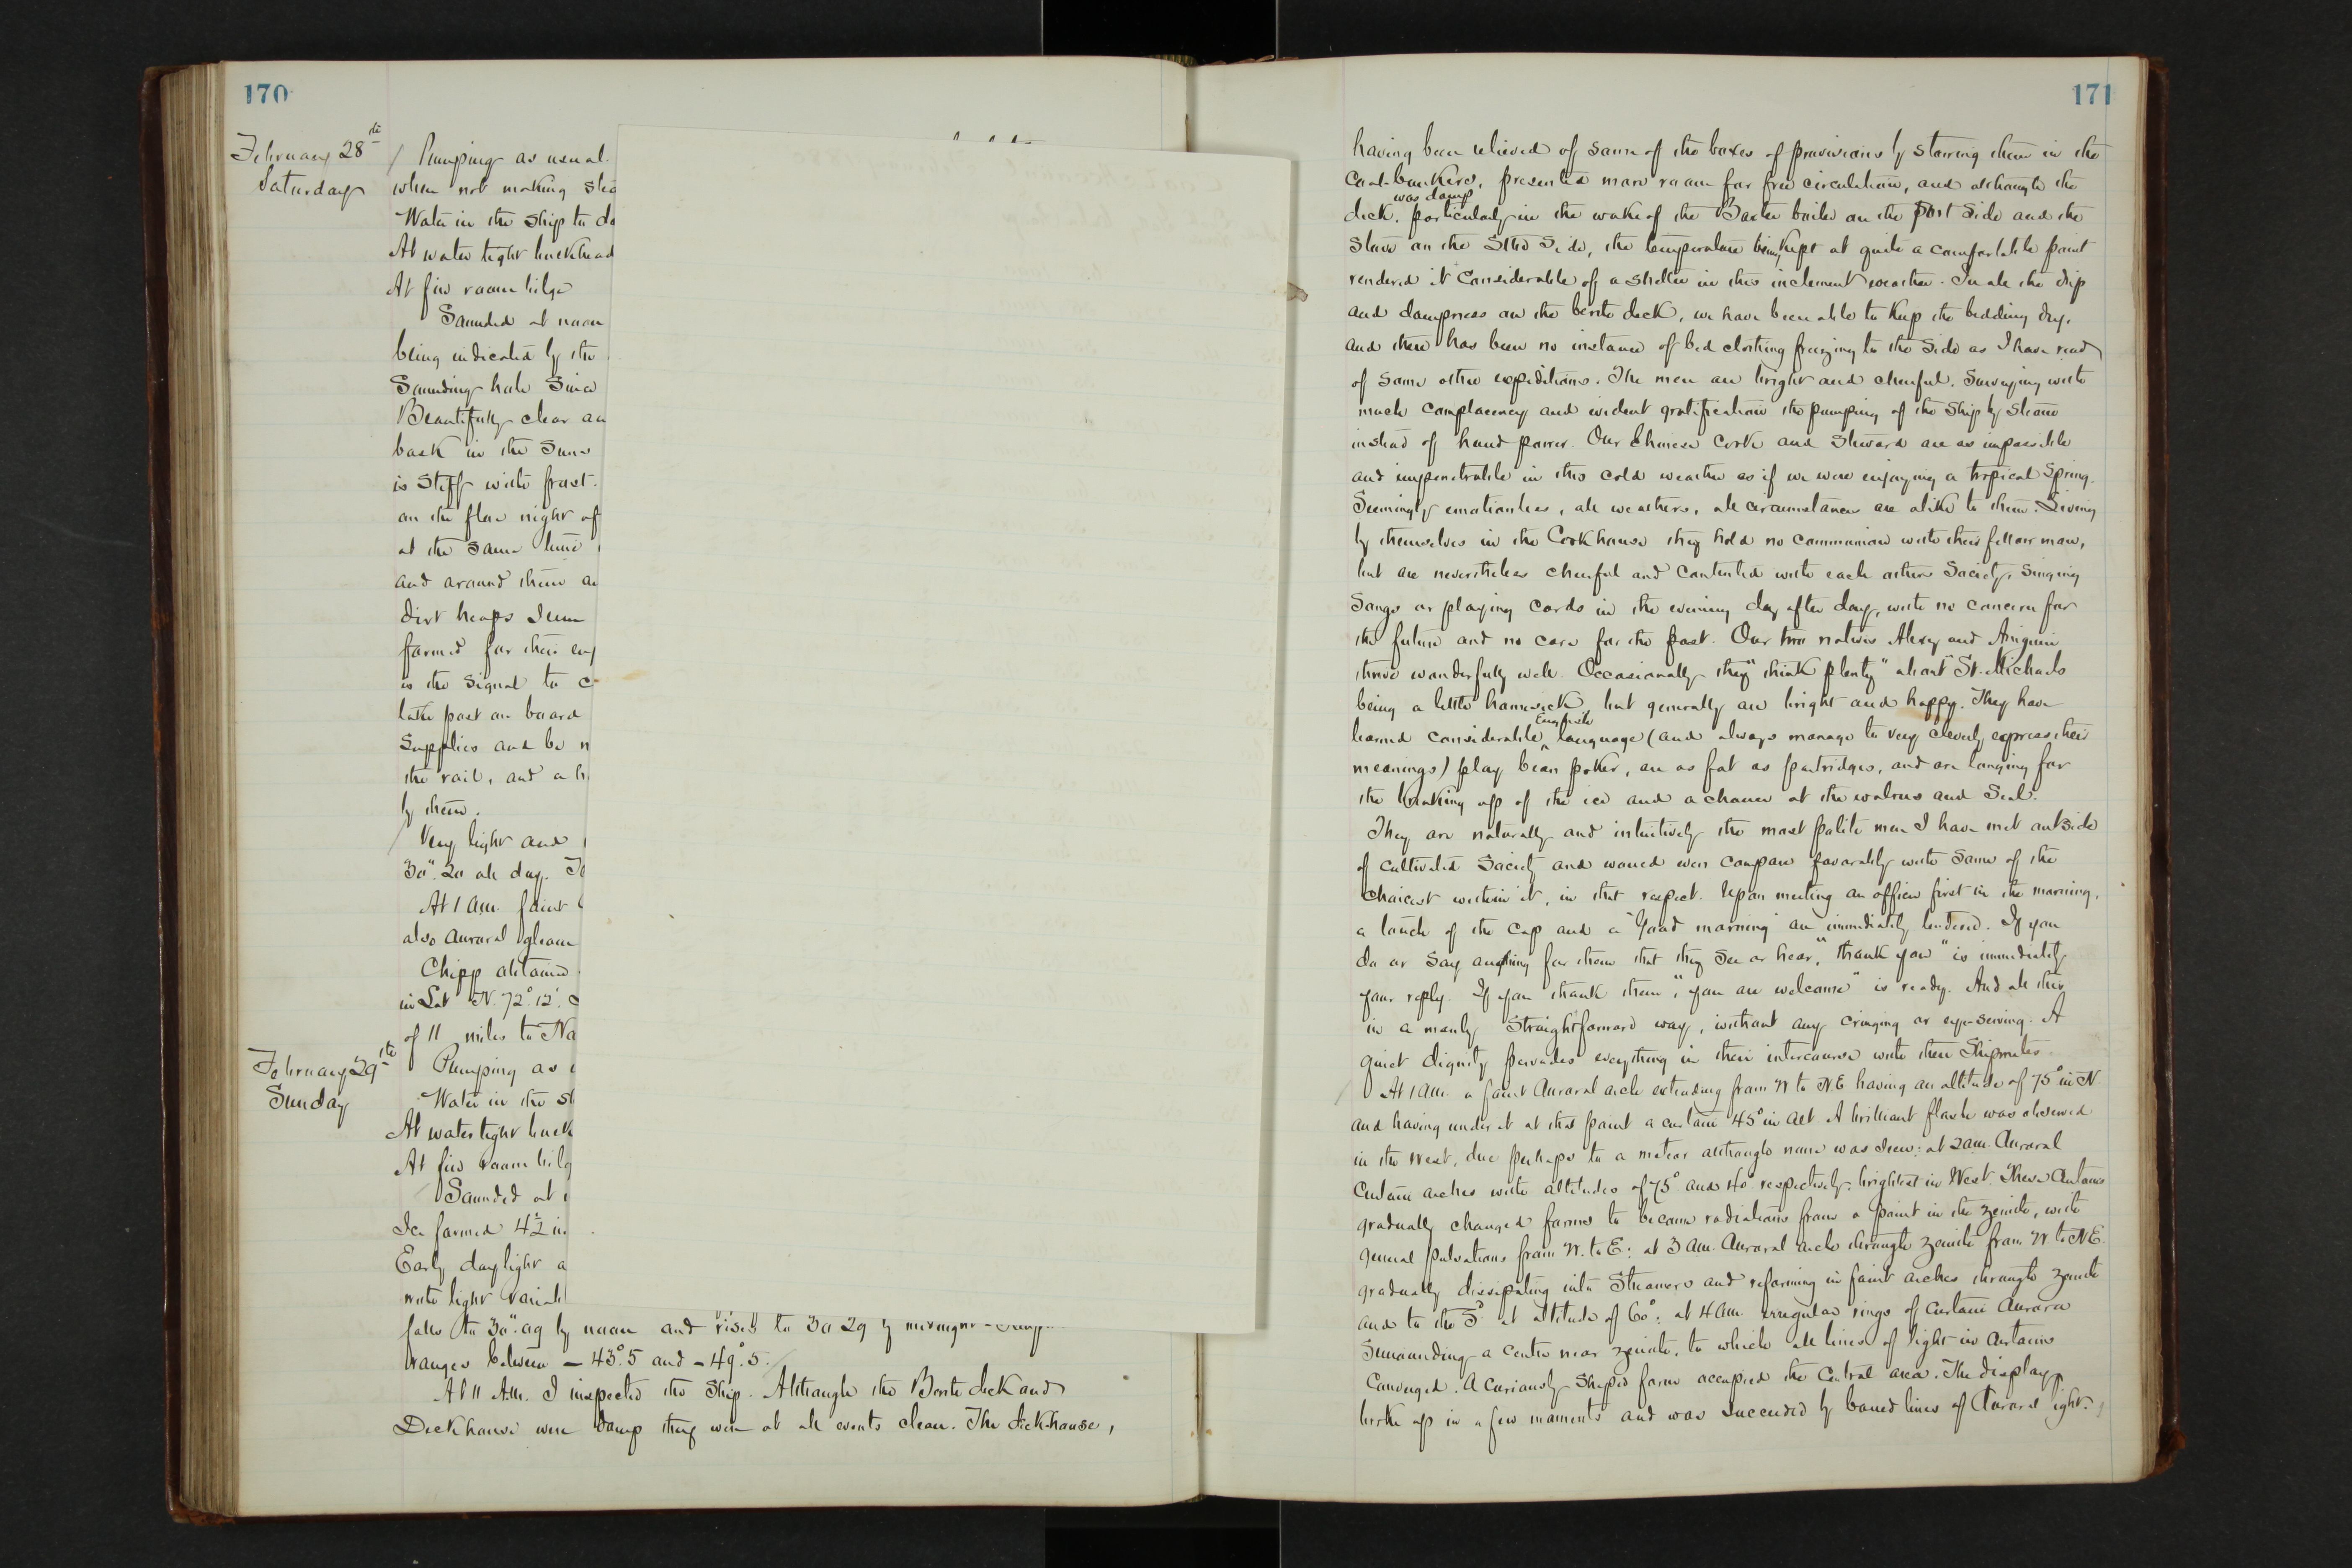 170
February 28th
Saturday
Pumping as usual.
when not making stea
Water in the ship to do
At water tight bulkhead
At fire room bilge
Sounded at noon
being indicated by the
Sounding hole Since
Beautifully clear an
bask in the Suns
is stiff with frost.
on the floe night of
at the same time
and around them ar
dirt heaps Seem
formed for their enj
is the signal to c
latter part on board
Supplies and be n
the rail, and a h
by them.
Very light and
30".20 all day. Te
At 1 a.m. faint
also auroral gleam
Chipp obtained
in Lat N. 72°.12'.
of 11 miles to Na
February 29th
Sunday
Pumping as
Water in the sh
At water tight bulk
At fire room bilg
Sounded at
Ice formed 4½ in
Early daylight a
with light variab
falls to 30".09 by noon and rises to 30 29 by midnight
ranges between -43°.5 and -49°.5.
At 11 A.M. I inspected the Ship. Although the Berth deck and
Deckhouse were damp they were at all events clean. The deck-house,
171
having been relieved of some of the boxes of provisions by stowing them in the
Coal-bunkers, presented more room for free circulation, and although the
deck was damp particularly in the wake of the Baxter boiler on the port Side and the
stove on the Stbd Side, the temperature being kept at quite a comfortable point
rendered it considerable of a shelter in this inclement weather. In all the drip
and dampness on the berth deck, we have been able to keep the bedding dry,
and there has been no instance of bed clothing freezing to the Side as I have read
of some other expeditions. The men are bright and cheerful. Surveying with
much complacency and evident gratification the pumping of the Ship by steam
instead of hand power. Our Chinese Cook and Steward are as impassible
and impenetrable in this cold weather as if we were enjoying a tropical Spring.
Seemingly emotionless, all weathers, all circumstances are alike to them. Living
by themselves in the Cookhouse they hold no communion with their fellow man,
but are nevertheless cheerful and contented with each others Society, Singing
Songs or playing cards in the evening day after day, with no concern for
the future and no care for the past. Our two natives Alexey and Aniguin
thrive wonderfully well. Occasionally they "think plenty" about St. Michaels
being a little homesick, but generally are bright and happy. They have
learned considerable English language (and always manage to very cleverly express their
meanings) play bean poker, are as fat as partridges, and are longing for
the breaking up of the ice and a chance at the walrus and Seal.
They are naturally and intuitively the most polite men I have met outside
of cultivated Society and would even compare favorably with Some of the
choicest within it, in that respect. Upon meeting an officer first in the morning,
a touch of the cap and a "Good morning" are immediately tendered. If you
do or say anything for them that they See or hear, "thank you" is immediately
your reply. If you thank them, "you are welcome" is ready. And all this
in a manly Straightforward way, without any cringing or eye-serving. A
quiet dignity pervades everything in their intercourse with their Shipmates.
At 1 a.m. a faint Auroral arch extending from W to N.E. having an altitude of 75° in N.
and having under it at that point a curtain 45° in alt. A brilliant flash was observed
in the west, due perhaps to a meteor although none was seen: at 2 a.m. Auroral
Curtain arches with altitudes of 75° and 40° respectively: brightest in West. These Curtains
gradually changed forms to become radiations from a point in the zenith, with
general pulsations from W. to E: at 3 a.m. Auroral arch through zenith from W to N.E.
gradually dissipating into Streamers and reforming in faint arches through zenith
and to the S° at altitude of 60°: at 4 a.m. irregular rings of Curtain Aurora
Surrounding a centre near zenith, to which all lines of light in Curtains
Converged. A curiously shaped form occupied the Central area. The display
broke up in a few moments and was succeeded by banded lines of Auroral light.